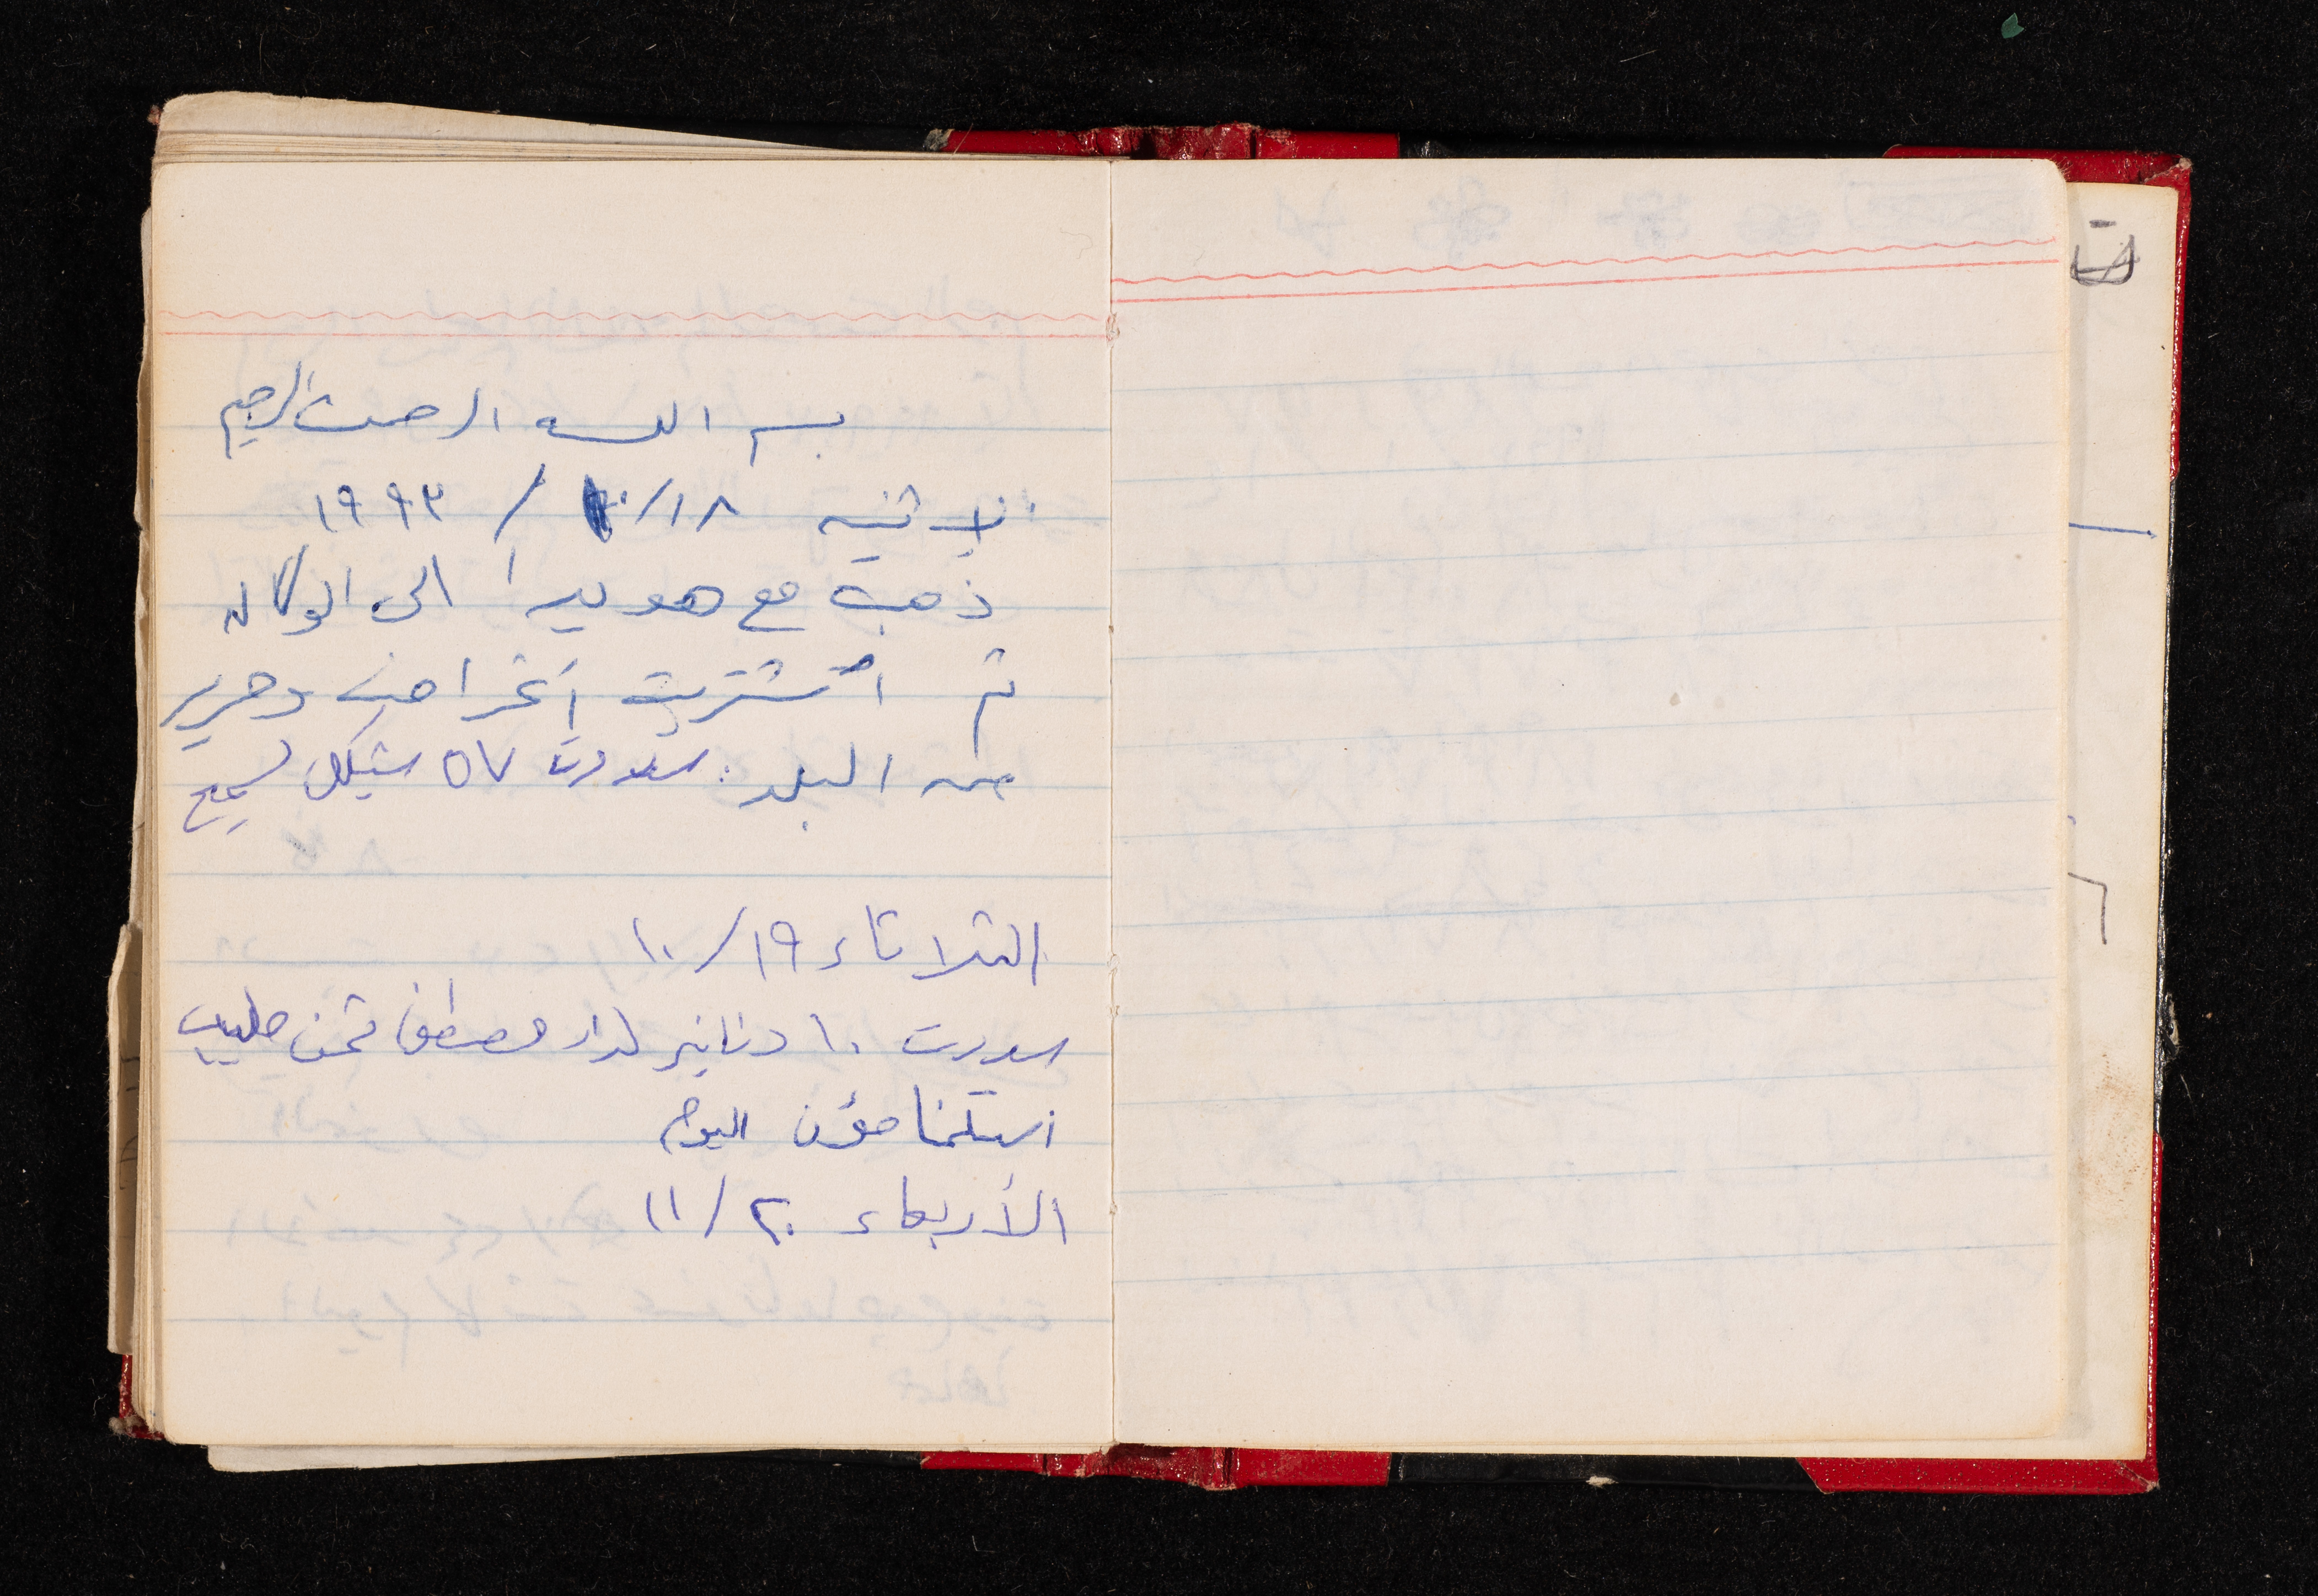 بسم الله الرحمن الرحيم
الاثنين ١٨/١٠/١٩٩٣
ذهبت مع هويدا الى الوكاله
ثم اشتريت أغراض وحرير
من البلد. سددت ٥٧ شيكل لسميح
الثلاثاء ١٩/١٠
سددت ١٠ دنانير لدار مصطفى ثمن حليب
استلمنا مؤن اليوم
الأربعاء ٢٠/١١